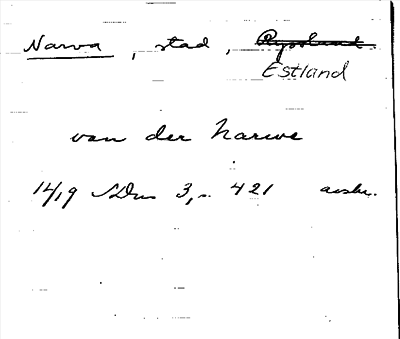 Narva, stad, Ryssland
Estland
van der Narwe
14/19 SDns 3, s. 421 avskr.